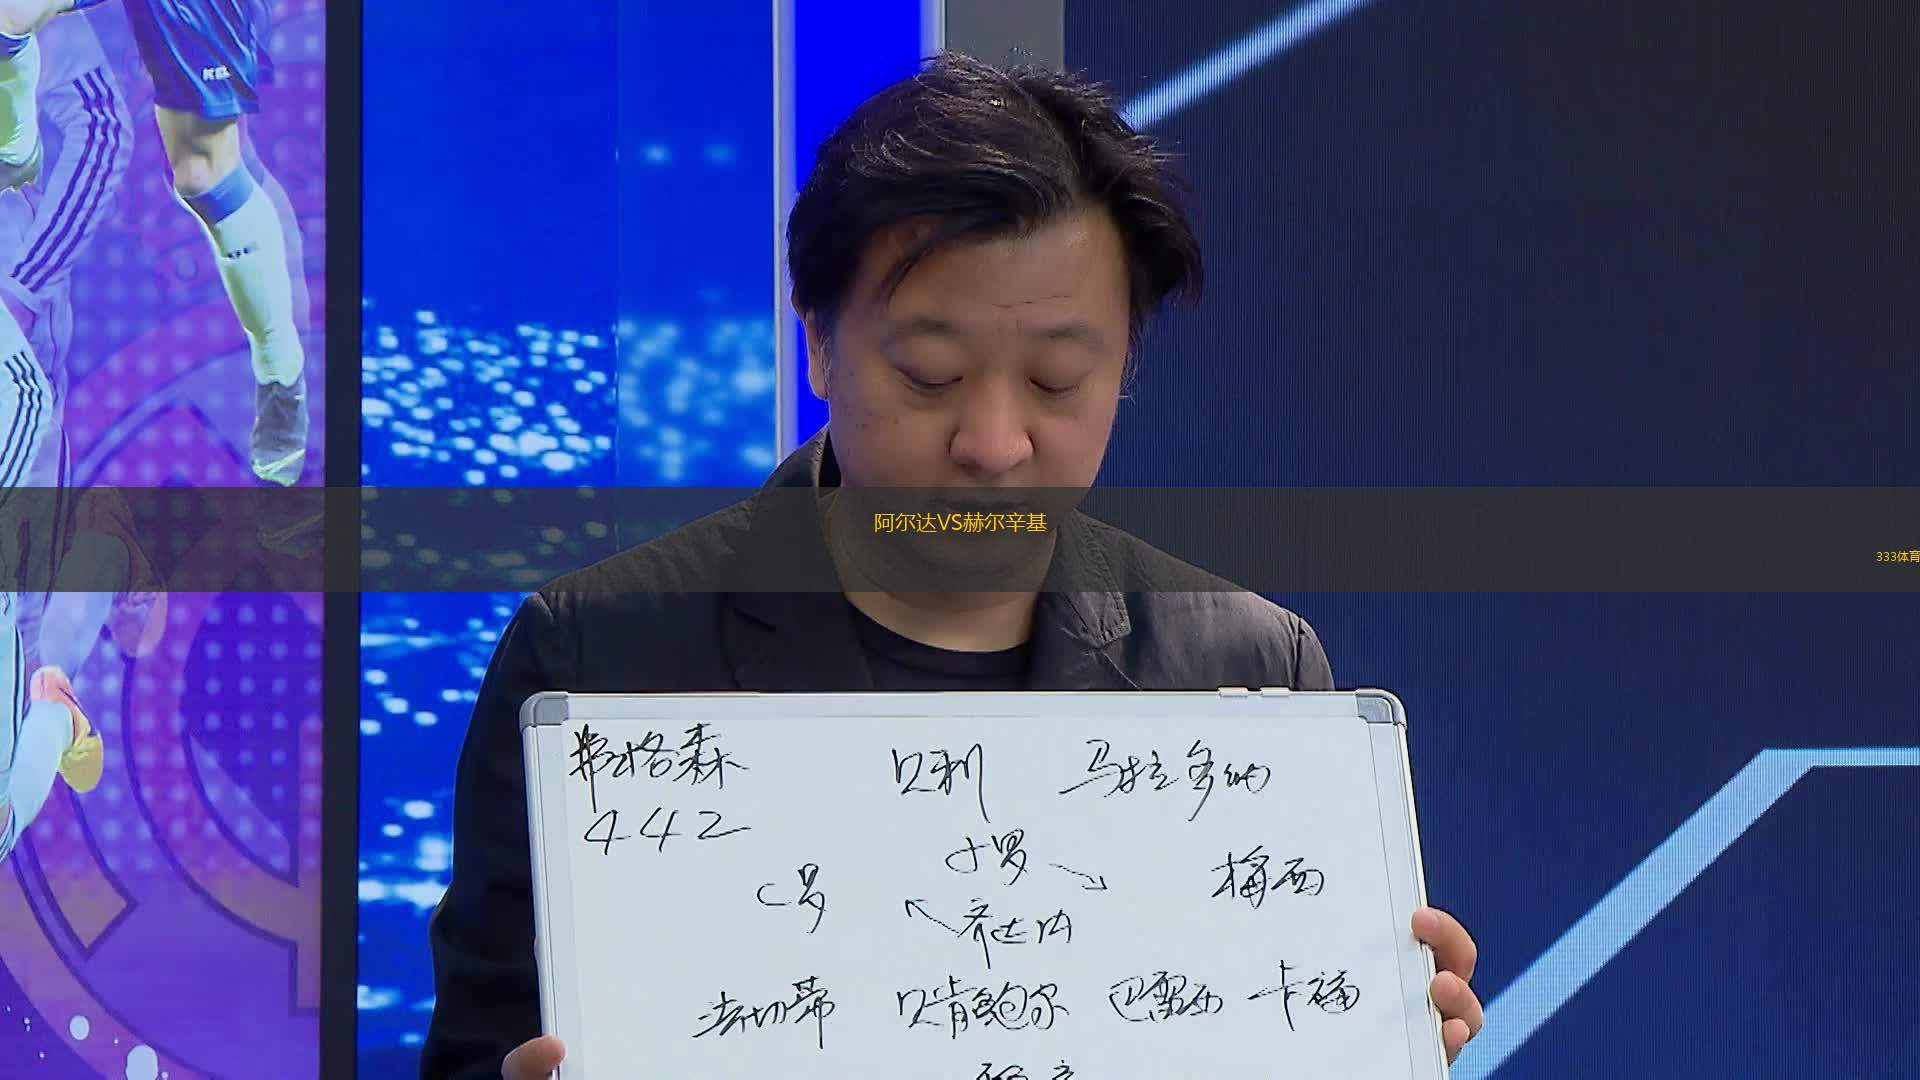 KEL
阿尔达VS赫尔辛基
333体育
弗格森 贝利 马拉多纳
442
小罗
C罗 梅西
齐达内
法切蒂 贝肯鲍尔 巴雷西 卡福